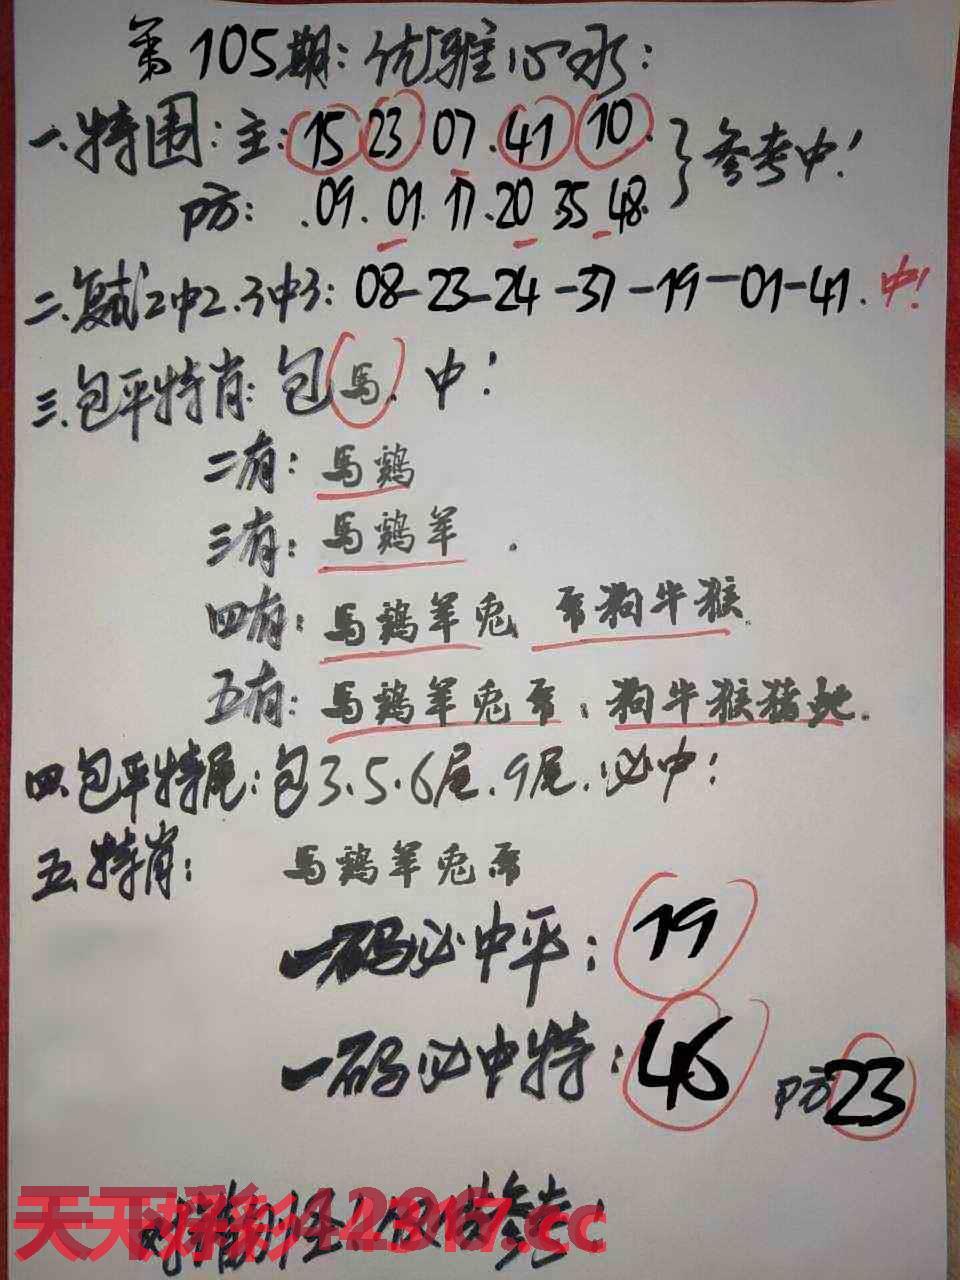 第105期:优雅心水:
一.特围:主:15 23.07.41 10.
}参考中!
防:.09.01.17.20 35 48.
二.复式2中2.3中3:08-23-24-37-19-01-41.中!
三.包平特肖:包馬.中!
二有:馬鷄
三有:馬鷄羊.
四有:馬鷄羊兔 狗牛猴.
五有:馬鷄羊兔;狗牛猴猪.
四.包平特尾:包3.5.6尾.9尾.必中!
五.特肖:馬鷄羊兔
一码必中平:19
一码必中特:46 防23
参考!
天下彩
.cc